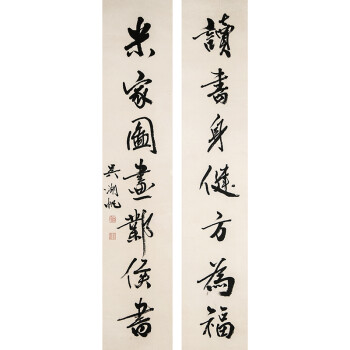 讀書身健方為福
米家圖畫鄴侯書
吳湖帆